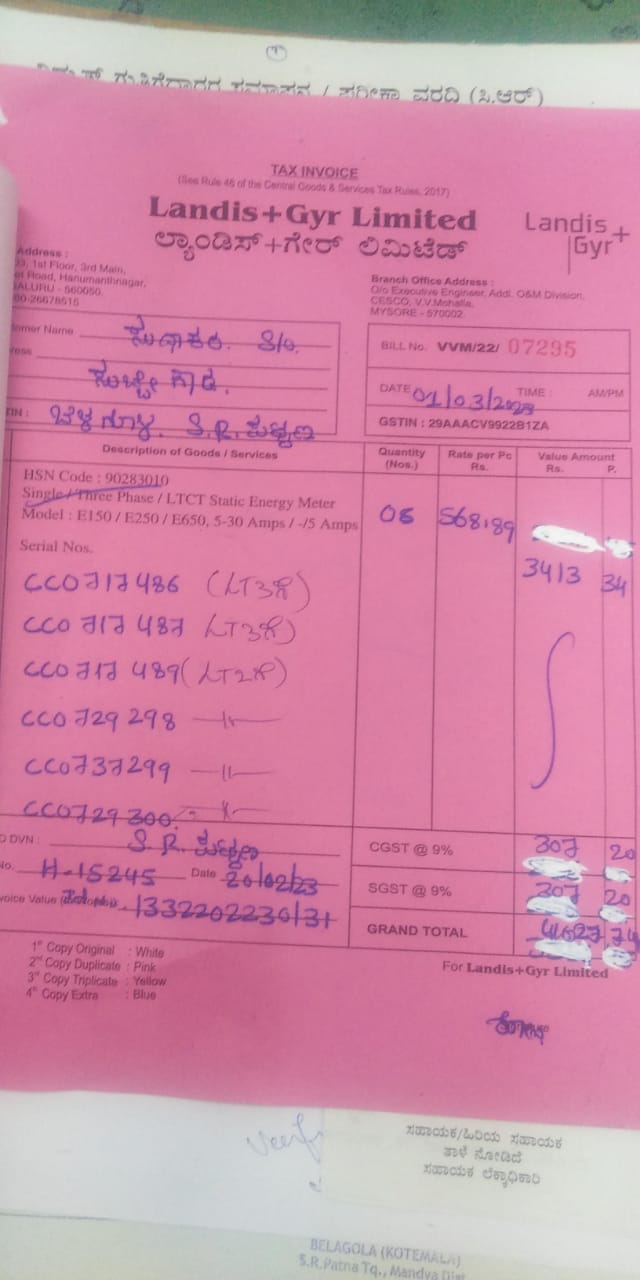 ಸಮಾಪನ / ಪರೀಕ್ಷಾ ವರದಿ (ಸಿ.ಆರ್)
TAX INVOICE
(See Rule 46 of the Central Goods & Services Tax Rules, 2017)
Landis+Gyr Limited
Landis+
Gyr
ಲ್ಯಾಂಡಿಸ್+ಗೇರ್ ಲಿಮಿಟೆಡ್
Address :
1st Floor, 3rd Main,
Road, Hanumanthnagar,
- 560050.
26678515
Branch Office Address :
O/o Executive Engineer, Addl. O&M Division,
CESCO, V.V.Mohalla,
MYSORE - 570002.
Name ಸುಧಾಕರ. S/o.
BILL No. VVM/22/ 07295
DATE 01/03/2023 TIME : AM/PM
S.R.
GSTIN : 29AAACV9922B1ZA
Description of Goods / Services
Quantity (Nos.)
Rate per Pc Rs.
Value Amount Rs. P.
HSN Code : 90283010
Single / Three Phase / LTCT Static Energy Meter
Model : E150 / E250 / E650, 5-30 Amps / -/5 Amps
06 568.89
3413 34
Serial Nos.
CC0717486
CC0717487
CC0717489
CC0729298 —11—
CC0737299 —11—
CC0729300
DVN : S.R.
CGST @ 9% 307 20
No. H-15245 Date 20/02/23
SGST @ 9% 307 20
1332202230131
GRAND TOTAL
1st Copy Original : White
2nd Copy Duplicate : Pink
3rd Copy Triplicate : Yellow
4th Copy Extra : Blue
For Landis+Gyr Limited
ಸಹಾಯಕ/ಹಿರಿಯ ಸಹಾಯಕ
ತಾಳೆ ನೋಡಿದೆ
ಸಹಾಯಕ ಲೆಕ್ಕಾಧಿಕಾರಿ
BELAGOLA (KOTEMALA)
S.R.Patna Tq., Mandya Dist